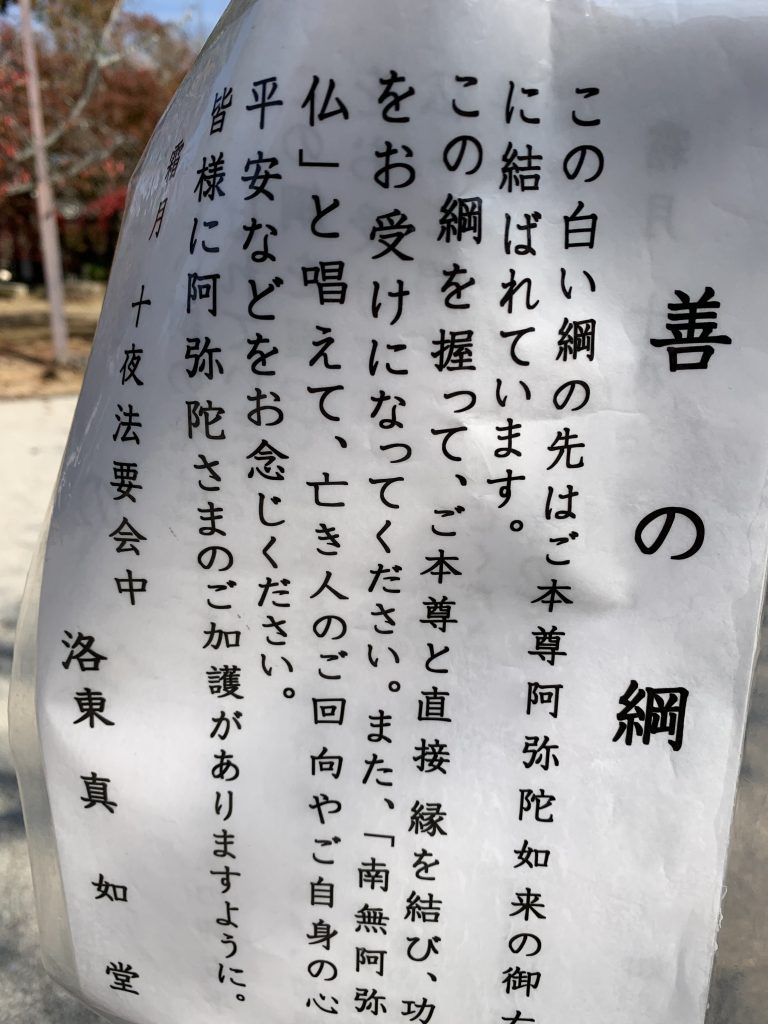 善の綱
この白い綱の先はご本尊阿弥陀如来の御右
に結ばれています。
この綱を握って、ご本尊と直接縁を結び、功
をお受けになってください。また、「南無阿弥
仏」と唱えて、亡き人のご回向やご自身の心
平安などをお念じください。
皆様に阿弥陀さまのご加護がありますように。
霜月
十夜法要会中
洛東真如堂